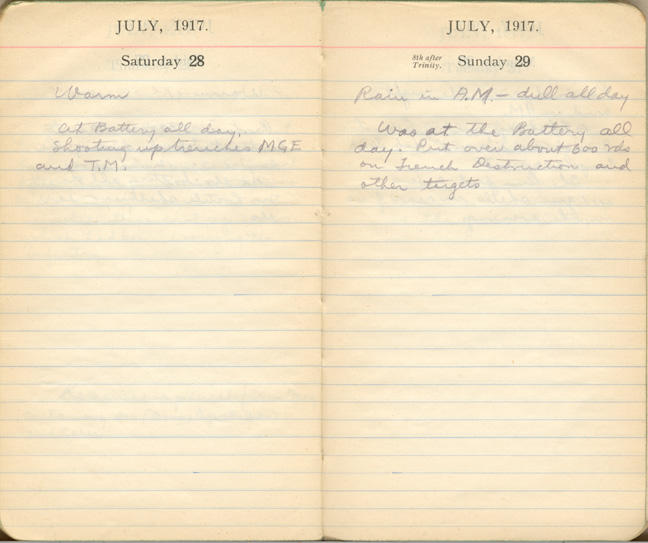 JULY, 1917.
Saturday 28
Warm
At Battery all day,
Shooting up trenches MGE
and T.M.
JULY, 1917.
8th after
Trinity.
Sunday 29
Rain in A.M. – dull all day
Was at the Battery all
day. Put over about 600 rds
on Trench Destruction and
other targets